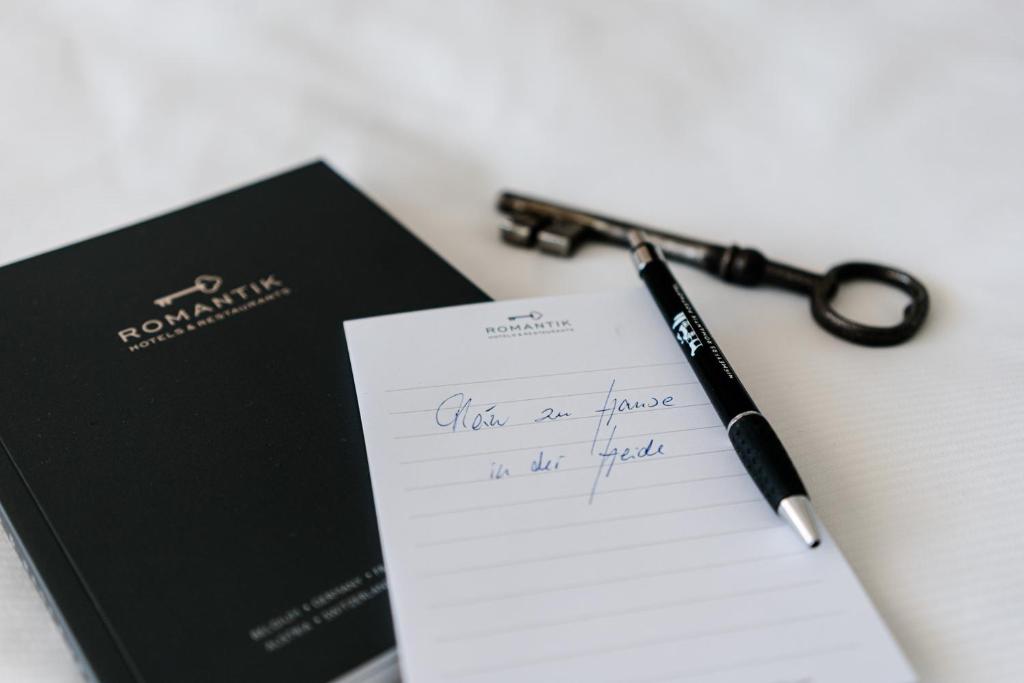 ROMANTIK
HOTELS & RESTAURANTS
BELGIUM • GERMANY •
AUSTRIA • SWITZERLAND
ROMANTIK
HOTELS & RESTAURANTS
Mein zu Hause
in der Heide